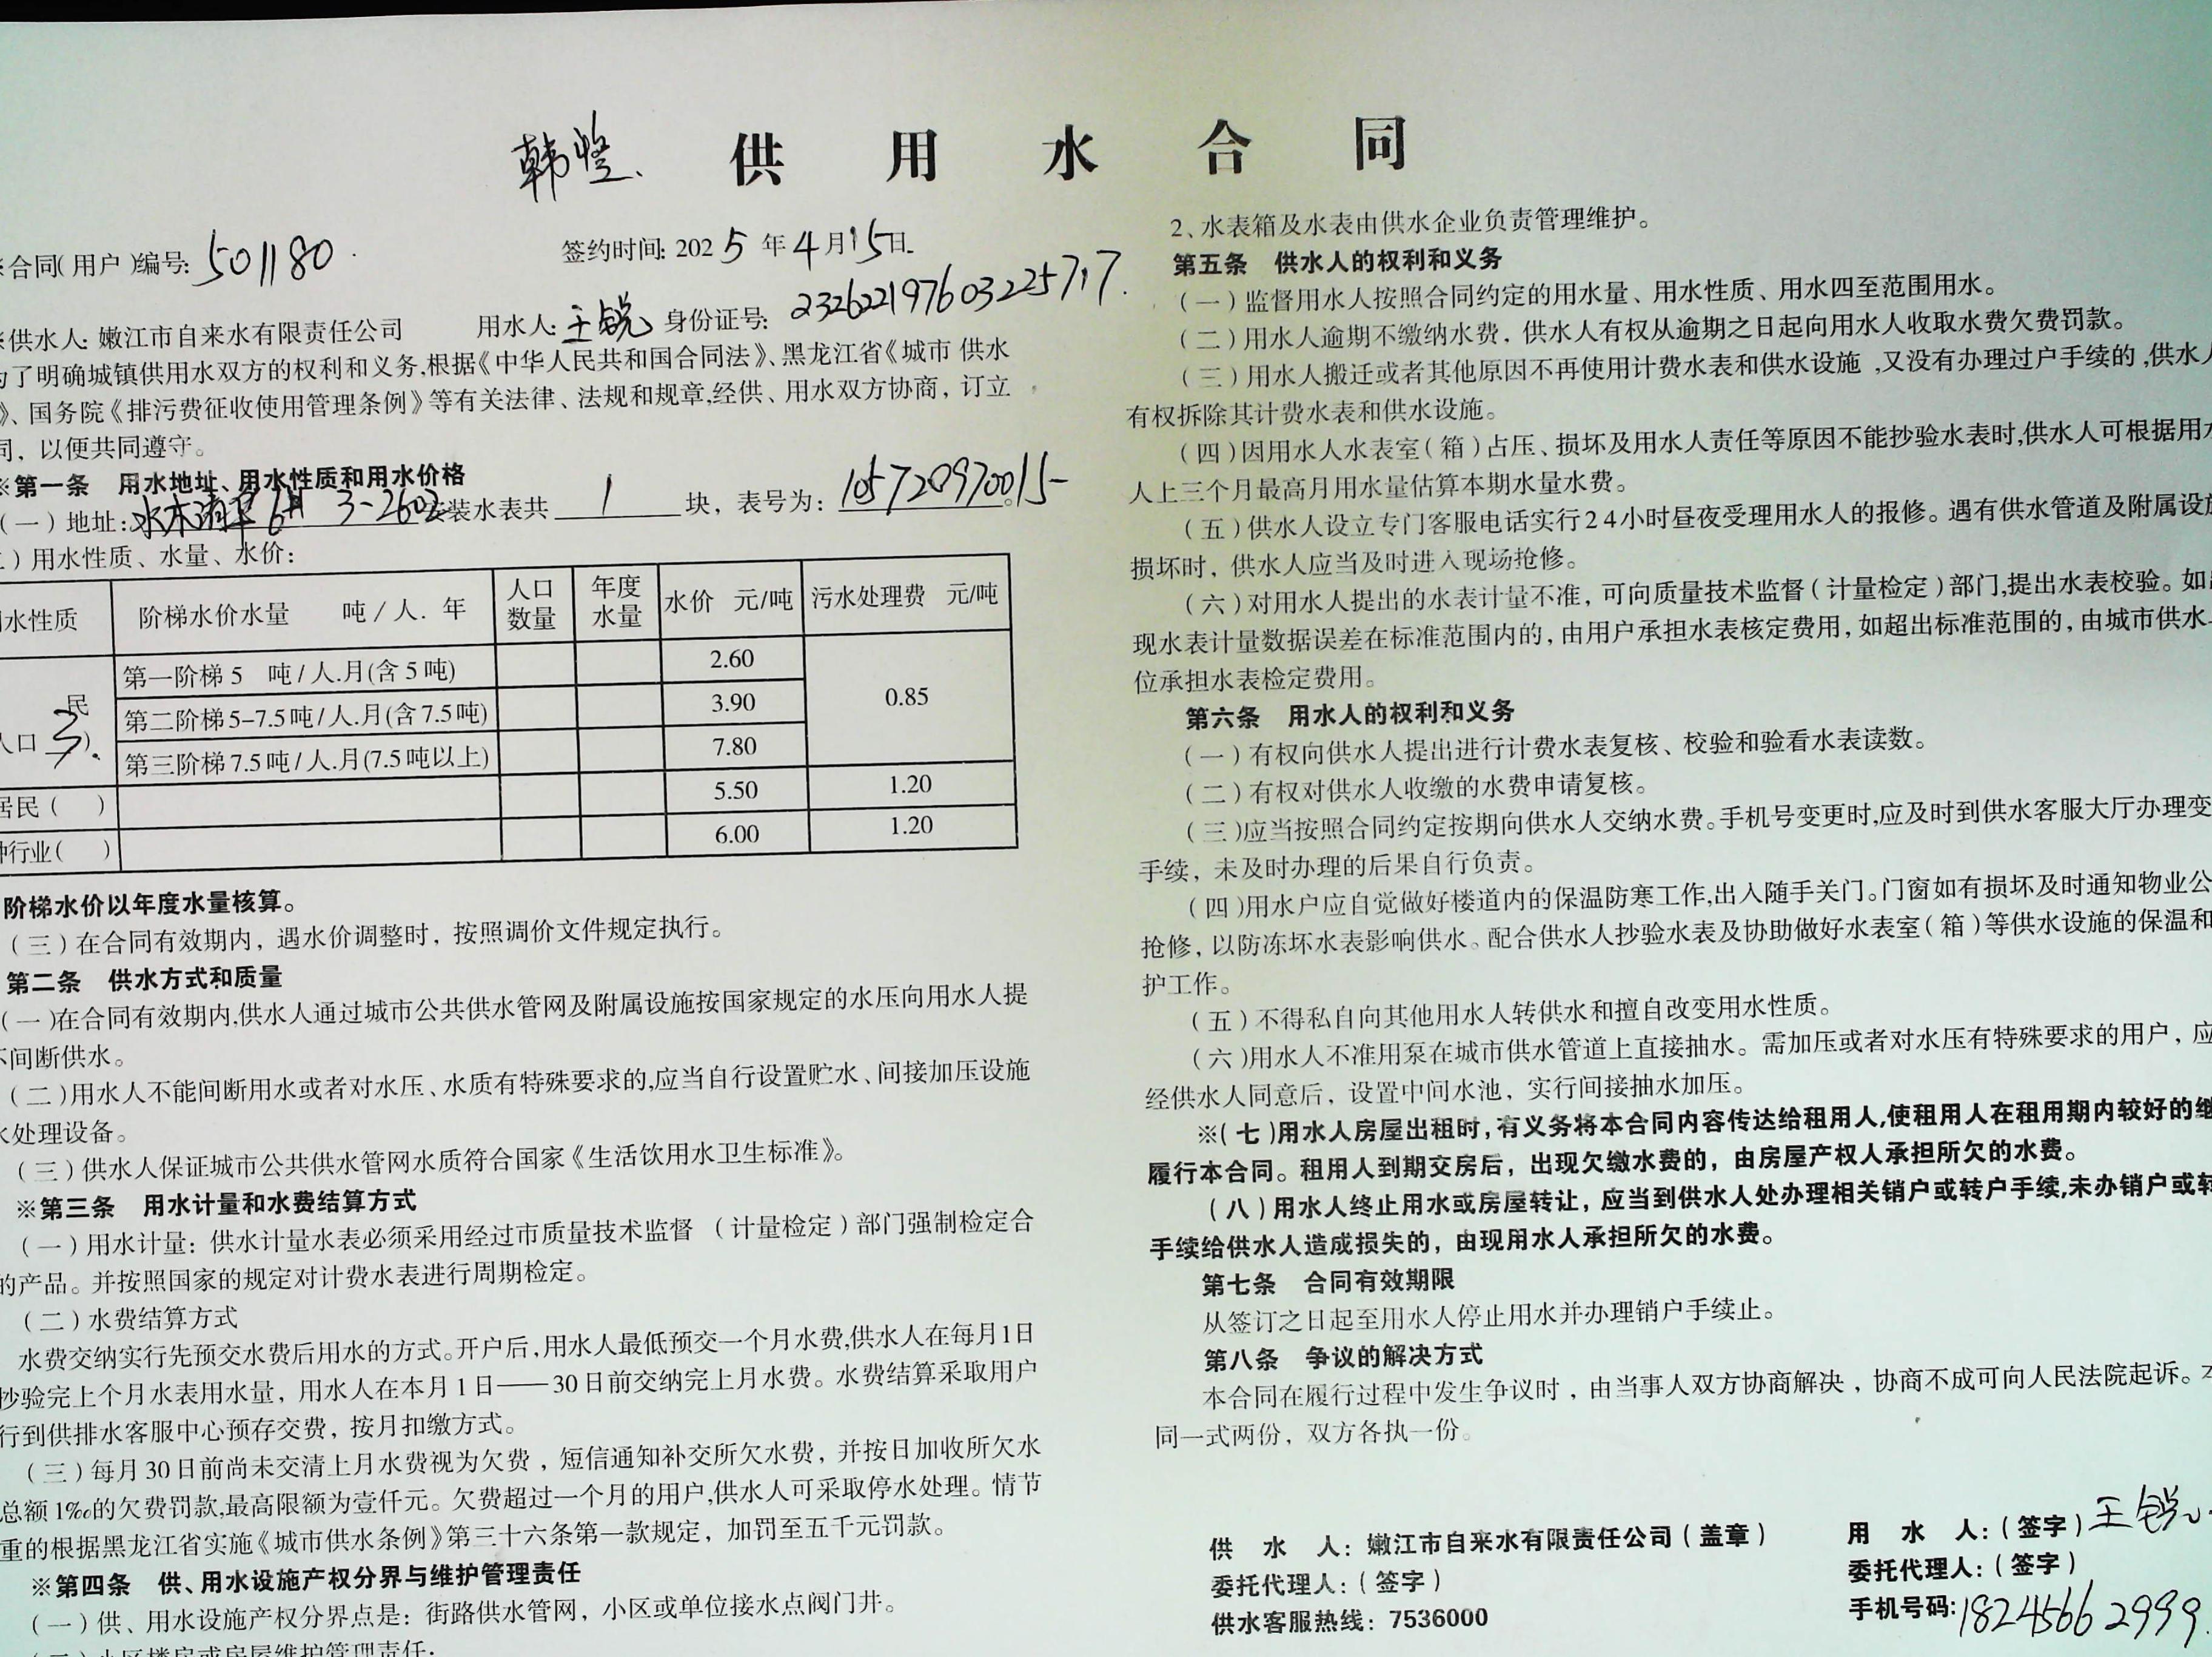 韩
供 用 水 合 同
合同(用户)编号: 501180
签约时间: 2025 年 4 月 15 日
供水人: 嫩江市自来水有限责任公司 用水人: 王锐 身份证号: 232622197603225717
了明确城镇供用水双方的权利和义务,根据《中华人民共和国合同法》、黑龙江省《城市 供水
》、国务院《排污费征收使用管理条例》等有关法律、法规和规章,经供、用水双方协商，订立
同，以便共同遵守。
※第一条 用水地址、用水性质和用水价格
(一)地址: 水木清华 3-2602 装水表共 1 块，表号为: 105720970015
)用水性质、水量、水价:
水性质 阶梯水价水量 吨/人.年 人口数量 年度水量 水价 元/吨 污水处理费 元/吨
民
人口 3 )
第一阶梯 5 吨/人.月(含 5 吨) 2.60 0.85
第二阶梯 5-7.5 吨/人.月(含 7.5 吨) 3.90
第三阶梯 7.5 吨/人.月(7.5 吨以上) 7.80
居民( ) 5.50 1.20
种行业( ) 6.00 1.20
阶梯水价以年度水量核算。
(三)在合同有效期内，遇水价调整时，按照调价文件规定执行。
第二条 供水方式和质量
(一)在合同有效期内,供水人通过城市公共供水管网及附属设施按国家规定的水压向用水人提
不间断供水。
(二)用水人不能间断用水或者对水压、水质有特殊要求的,应当自行设置贮水、间接加压设施
水处理设备。
(三)供水人保证城市公共供水管网水质符合国家《生活饮用水卫生标准》。
※第三条 用水计量和水费结算方式
(一)用水计量：供水计量水表必须采用经过市质量技术监督 (计量检定)部门强制检定合
的产品。并按照国家的规定对计费水表进行周期检定。
(二)水费结算方式
水费交纳实行先预交水费后用水的方式。开户后,用水人最低预交一个月水费,供水人在每月1日
抄验完上个月水表用水量，用水人在本月 1 日——30 日前交纳完上月水费。水费结算采取用户
行到供排水客服中心预存交费，按月扣缴方式。
(三)每月 30 日前尚未交清上月水费视为欠费，短信通知补交所欠水费，并按日加收所欠水
总额 1‰的欠费罚款,最高限额为壹仟元。欠费超过一个月的用户,供水人可采取停水处理。情节
重的根据黑龙江省实施《城市供水条例》第三十六条第一款规定，加罚至五千元罚款。
※第四条 供、用水设施产权分界与维护管理责任
(一)供、用水设施产权分界点是：街路供水管网，小区或单位接水点阀门井。
小区楼房或房屋维护管理责任:
2、水表箱及水表由供水企业负责管理维护。
第五条 供水人的权利和义务
(一)监督用水人按照合同约定的用水量、用水性质、用水四至范围用水。
(二)用水人逾期不缴纳水费，供水人有权从逾期之日起向用水人收取水费欠费罚款。
(三)用水人搬迁或者其他原因不再使用计费水表和供水设施，又没有办理过户手续的,供水人
有权拆除其计费水表和供水设施。
(四)因用水人水表室(箱)占压、损坏及用水人责任等原因不能抄验水表时,供水人可根据用水
人上三个月最高月用水量估算本期水量水费。
(五)供水人设立专门客服电话实行24小时昼夜受理用水人的报修。遇有供水管道及附属设施
损坏时，供水人应当及时进入现场抢修。
(六)对用水人提出的水表计量不准，可向质量技术监督(计量检定)部门,提出水表校验。如
现水表计量数据误差在标准范围内的，由用户承担水表核定费用，如超出标准范围的，由城市供水
位承担水表检定费用。
第六条 用水人的权利和义务
(一)有权向供水人提出进行计费水表复核、校验和验看水表读数。
(二)有权对供水人收缴的水费申请复核。
(三)应当按照合同约定按期向供水人交纳水费。手机号变更时,应及时到供水客服大厅办理变
手续，未及时办理的后果自行负责。
(四)用水户应自觉做好楼道内的保温防寒工作,出入随手关门。门窗如有损坏及时通知物业公
抢修，以防冻坏水表影响供水。配合供水人抄验水表及协助做好水表室(箱)等供水设施的保温和
护工作。
(五)不得私自向其他用水人转供水和擅自改变用水性质。
(六)用水人不准用泵在城市供水管道上直接抽水。需加压或者对水压有特殊要求的用户，应
经供水人同意后，设置中间水池，实行间接抽水加压。
※(七)用水人房屋出租时,有义务将本合同内容传达给租用人,使租用人在租用期内较好的继
履行本合同。租用人到期交房后，出现欠缴水费的，由房屋产权人承担所欠的水费。
(八)用水人终止用水或房屋转让，应当到供水人处办理相关销户或转户手续,未办销户或转
手续给供水人造成损失的，由现用水人承担所欠的水费。
第七条 合同有效期限
从签订之日起至用水人停止用水并办理销户手续止。
第八条 争议的解决方式
本合同在履行过程中发生争议时，由当事人双方协商解决，协商不成可向人民法院起诉。本
同一式两份，双方各执一份。
供 水 人：嫩江市自来水有限责任公司(盖章)
委托代理人：(签字)
供水客服热线：7536000
用 水 人：(签字) 王锐
委托代理人：(签字)
手机号码: 18245662999